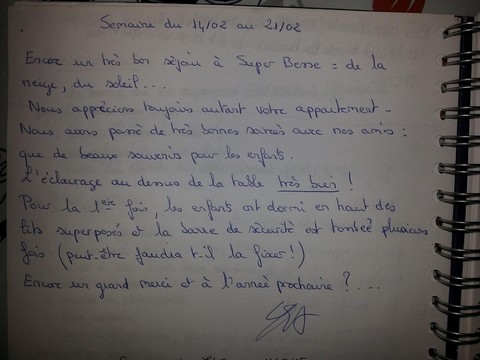 Semaine du 14/02 au 21/02
Encore un très bon séjour à Super Besse = de la
neige, du soleil...
Nous apprécions toujours autant votre appartement -
Nous avons passé de très bonnes soirées avec nos amis :
que de beaux souvenirs pour les enfants.
L'éclairage au dessus de la table très bien !
Pour la 1ère fois, les enfants ont dormi en haut des
lits superposés et la barre de sécurité est tombée plusieurs
fois (peut-être faudra t-il la fixer !)
Encore un grand merci et à l'année prochaine ?...